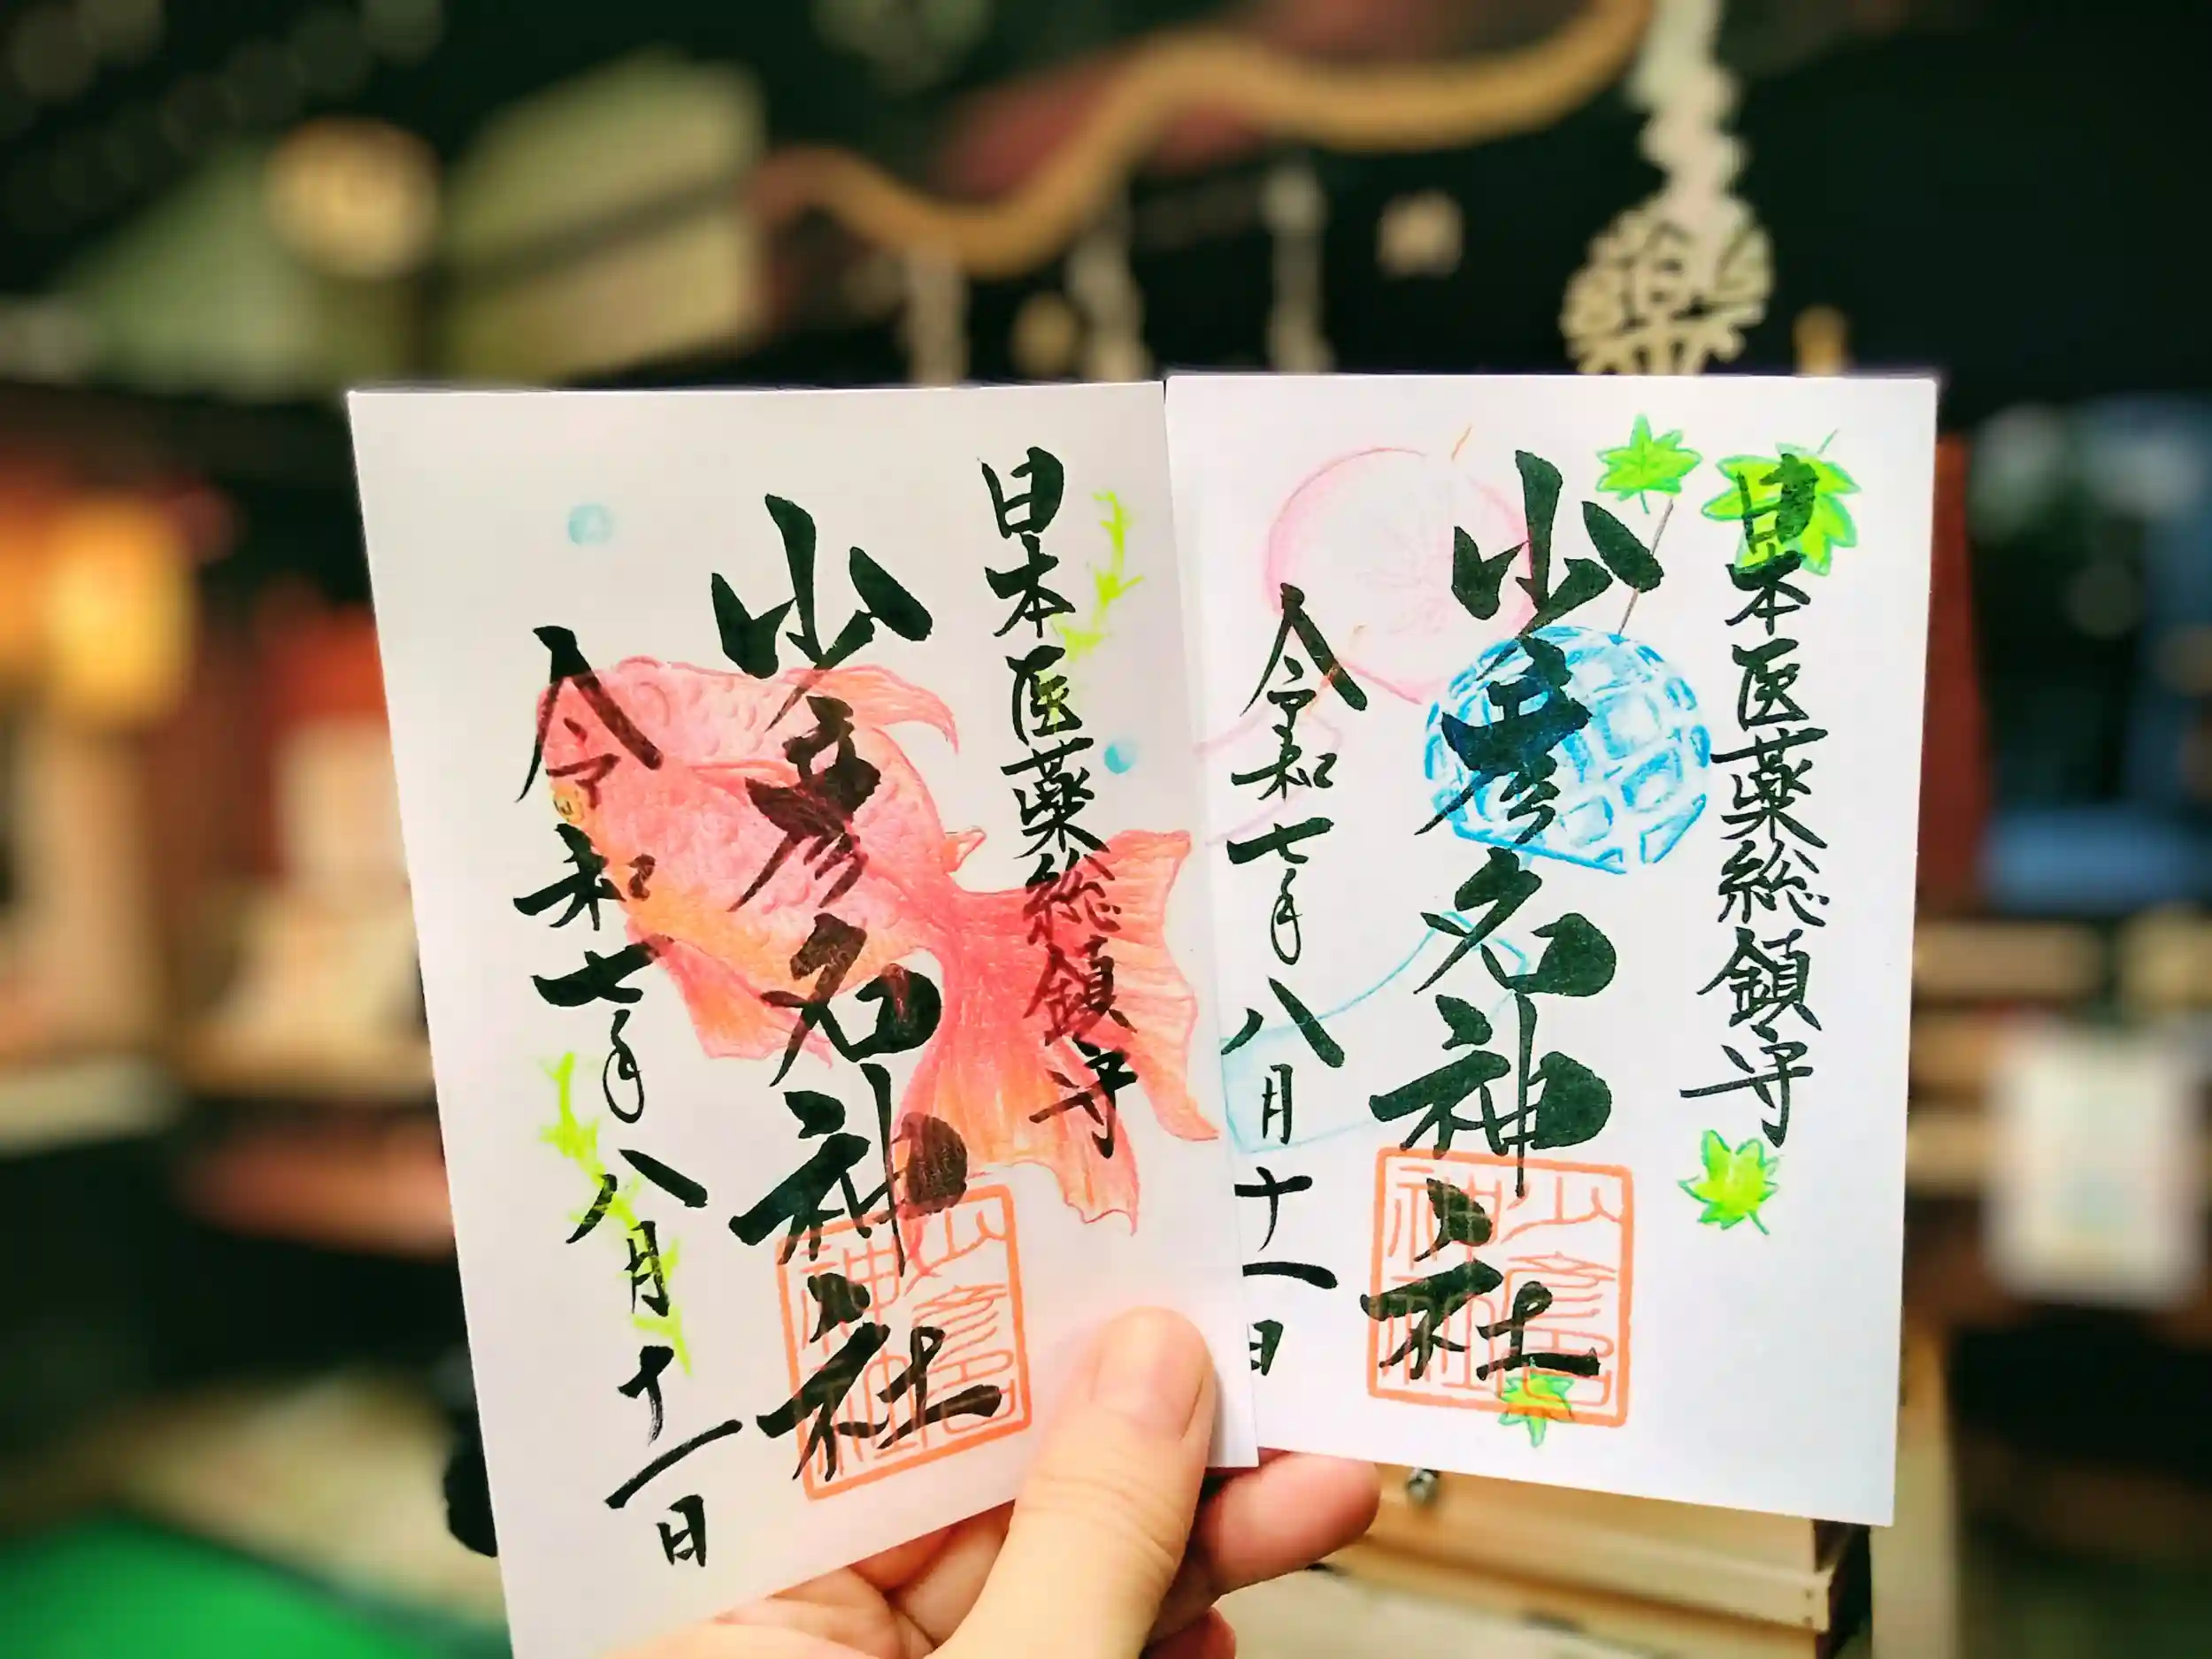 日本医薬総鎮守
少彦名神社
令和七年八月十一日
日本医薬総鎮守
少彦名神社
令和七年八月十一日
少彦名
神社
少彦名
神社
樂